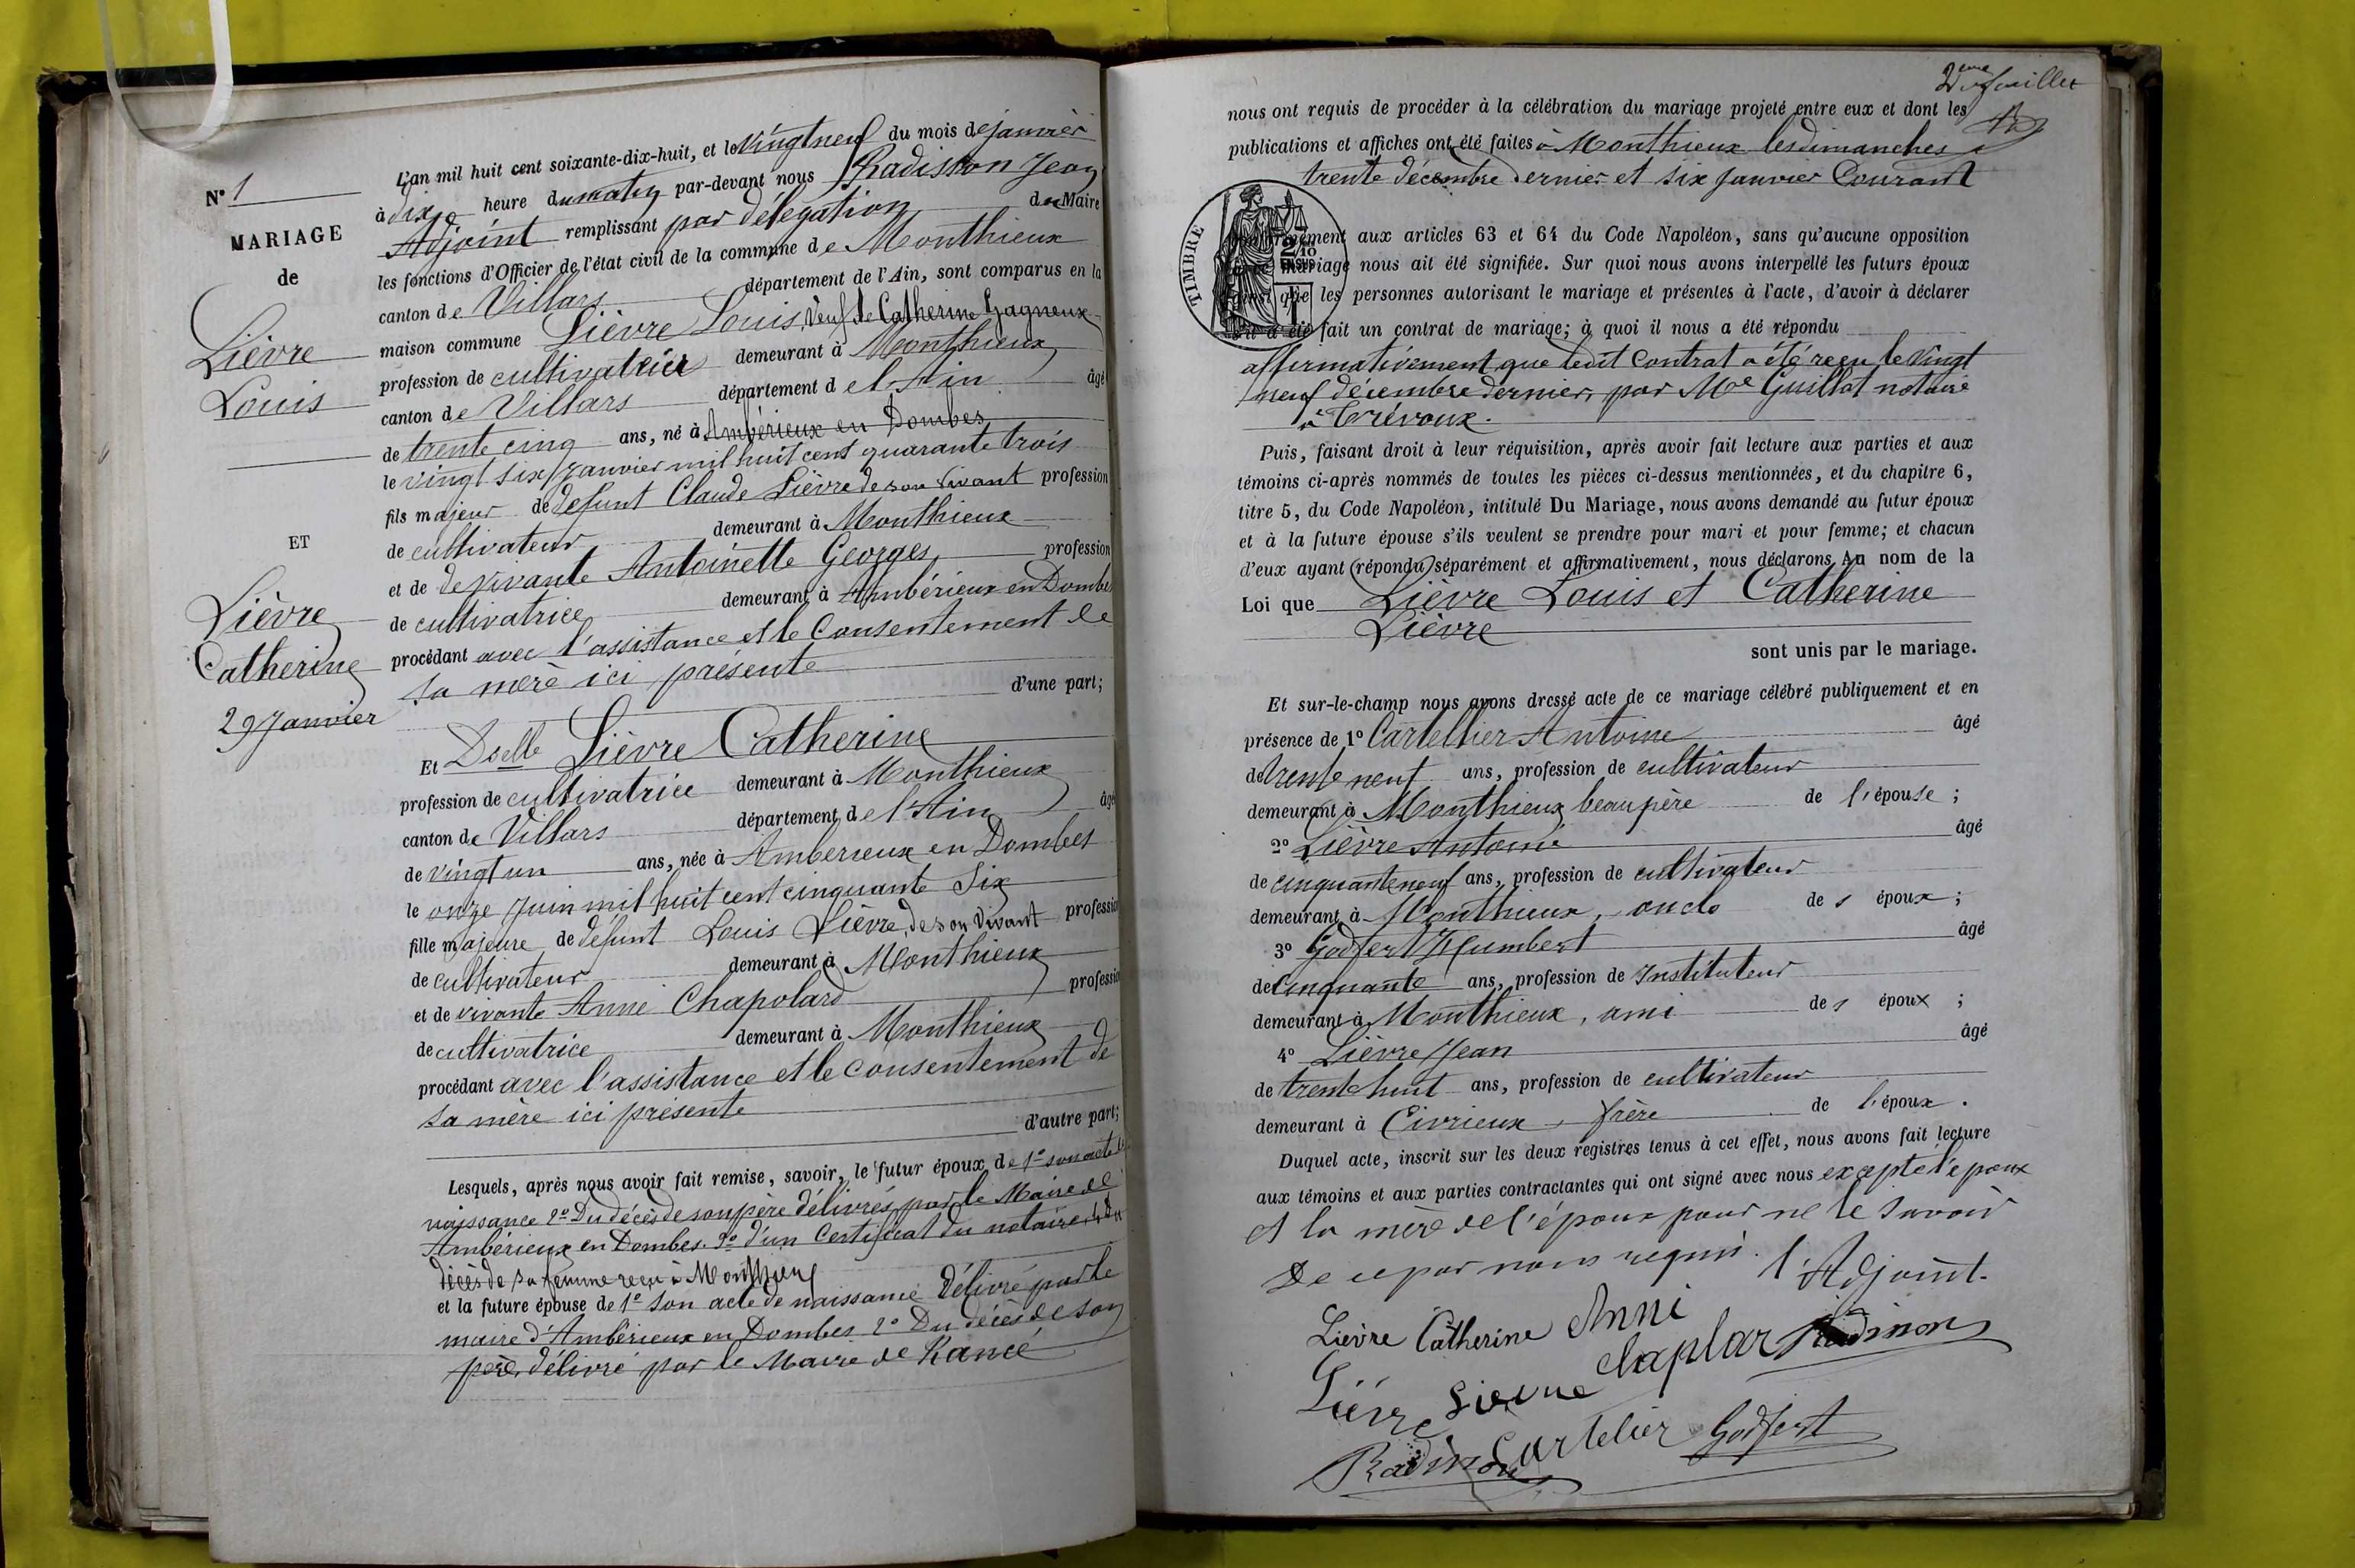 N° 1
MARIAGE
de
Lièvre
Louis
ET
Lièvre
Catherine
29 Janvier
L'an mil huit cent soixante-dix-huit, et le vingt neuf du mois de janvier
à dix heure du matin par-devant nous Radisson Jean
Adjoint remplissant par délégation du Maire
les fonctions d'Officier de l'état civil de la commune de Monthieux
canton de Villars département de l'Ain, sont comparus en la
maison commune Lièvre Louis, veuf de Catherine Gagneux
profession de cultivateur demeurant à Monthieux
canton de Villars département de l'Ain âgé
de trente cinq ans, né à Ambérieux en Dombes
le vingt six Janvier mil huit cent quarante trois
fils majeur de défunt Claude Lièvre de son vivant profession
de cultivateur demeurant à Monthieux
et de vivante Antoinette Georges, profession
de cultivatrice demeurant à Ambérieux en Dombes
procédant avec l'assistance et le consentement de
sa mère ici présente
d'une part;
Et Dselle Lièvre Catherine
profession de cultivatrice demeurant à Monthieux
canton de Villars département de l'Ain âgé
de vingt un ans, née à Amberieux en Dombes
le onze Juin mil huit cent cinquante Six
fille majeure de défunt Louis Lièvre, de son vivant profession
de cultivateur demeurant à Monthieux
et de vivante Anne Chapolard profession
de cultivatrice demeurant à Monthieux
procédant avec l'assistance et le consentement de
sa mère ici présente
d'autre part;
Lesquels, après nous avoir fait remise, savoir, le futur époux de 1° son acte de
naissance 2° Du décès de son père délivrés par le Maire de
Ambérieux en Dombes. 3° d'un Certificat du notaire, 4° du
décès de sa femme reçu à Monthieux
et la future épouse de 1° son acte de naissance délivré par le
maire d'Ambérieux en Dombes 2° Du décès de son
père, délivré par le Maire de Rancé
2eme feuillet
nous ont requis de procéder à la célébration du mariage projeté entre eux et dont les
publications et affiches ont été faites à Monthieux les dimanches
trente décembre dernier et six janvier Courant
TIMBRE
2/10
aux articles 63 et 64 du Code Napoléon, sans qu'aucune opposition
mariage nous ait été signifiée. Sur quoi nous avons interpellé les futurs époux
que les personnes autorisant le mariage et présentes à l'acte, d'avoir à déclarer
s'il a été fait un contrat de mariage; à quoi il nous a été répondu
affirmativement que ledit Contrat a été reçu le vingt
neuf décembre dernier, par Me Guillot notaire
à Trévoux.
Puis, faisant droit à leur réquisition, après avoir fait lecture aux parties et aux
témoins ci-après nommés de toutes les pièces ci-dessus mentionnées, et du chapitre 6,
titre 5, du Code Napoléon, intitulé Du Mariage, nous avons demandé au futur époux
et à la future épouse s'ils veulent se prendre pour mari et pour femme; et chacun
d'eux ayant répondu séparément et affirmativement, nous déclarons Au nom de la
Loi que Lièvre Louis et Catherine
Lièvre
sont unis par le mariage.
Et sur-le-champ nous avons dressé acte de ce mariage célébré publiquement et en
présence de 1° Cartellier Antoine âgé
de trente neuf ans, profession de cultivateur
demeurant à Monthieux beau père de l'épouse ;
2° Lièvre Antoine âgé
de cinquante neuf ans, profession de cultivateur
demeurant à Monthieux, oncle des époux ;
3° Godfert Humbert âgé
de Cinquante ans, profession de Instituteur
demeurant à Monthieux, ami des époux ;
4° Lièvre Jean âgé
de trente huit ans, profession de cultivateur
demeurant à Civrieux, frère de l'époux.
Duquel acte, inscrit sur les deux registres tenus à cet effet, nous avons fait lecture
aux témoins et aux parties contractantes qui ont signé avec nous excepté l'époux
et la mère de l'époux pour ne le savoir
de ce par nous requis. l'Adjoint.
Lièvre Catherine Anne
chaplar Radisson
Lièvre Lievre
Radisson Cartelier Godfert